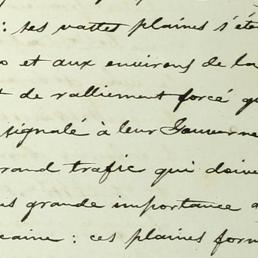 : ses vastes plaines s'éte
et aux environs de la
t de ralliement forcé qu
signalé à leur Gouverne
rand trafic qui doive
us grande importance a
caine : ces plaines form